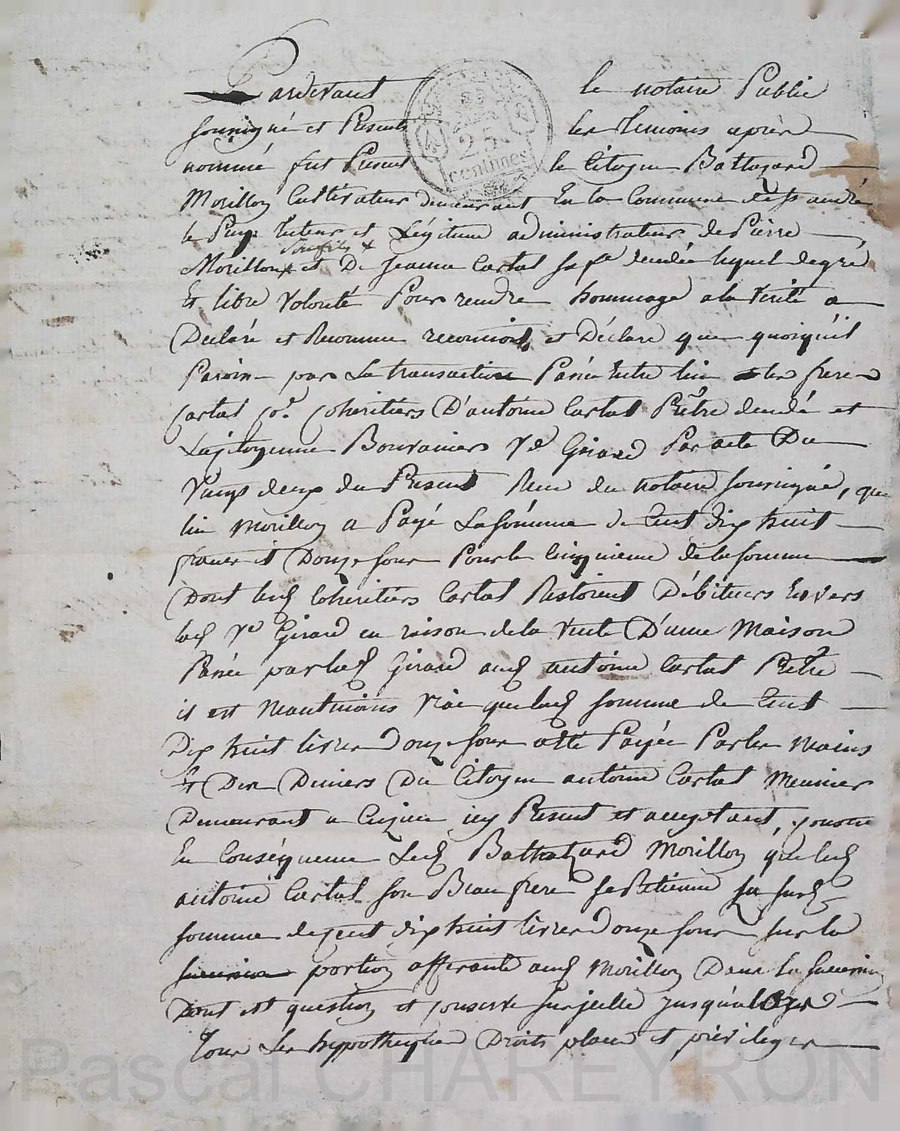 Pardevant le notaire Public
soussigné et Présents les Temoins après
nommé fut Présent le Citoyen Baltazard
25
centimes
Morillon Cultivateur demeurant En la Commune de St andré
le Puy Tuteur et Légitime administrateur de Pierre
son fils
Morillon et De Jeanne Cartal sa fe deudée lequel de gré
Et libre volonté Pour rendre hommage a la Verité a
Declaré et Reconnu reconnoit et Déclare que quoiqu'il
Paroin par La transaction Passée Entre lui les freres
Cartal Coheritiers D'antoine Cartal Prêtre deudé et
La Citoyenne Bouvanier Ve Girard Par acte Du
Vingt deux du Présent Reçu du notaire soussigné, que
lui Morillon a Payé La somme de Cent dix huit
francs et Douze sous Pour le Cinquieme de la somme
Dont les Coheritiers Cartal Restoient Débiteurs Envers
lad Ve Girard en raison de la Vente D'une Maison
Passée par lad Girard aud antoine Cartal Prêtre
il est Neantmoins Vrai que lad somme de Cent
Dix huit livres Douze sous a été Payée Par les Mains
Et Des Deniers Du Citoyen antoine Cartal Meunier
Demeurant a Cuzieu icy Présent et acceptant, Consent
En Conséquence Led Balthazard Morillon que led
antoine Cartal son Beau frere se Retienne la susd
somme de Cent dix huit livres Douze sous sur la
portion afferante aud Morillon Dans la succession
Dont est question et Conserve sur icelle jusqu'alors
Tous les hypotheques Droits place et privileges
Pascal CHAREYRON